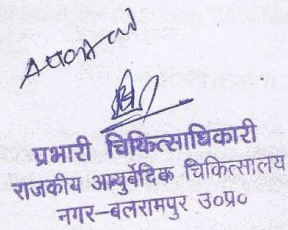 प्रभारी चिकित्साधिकारी
राजकीय आयुर्वेदिक चिकित्सालय
नगर-बलरामपुर उ०प्र०